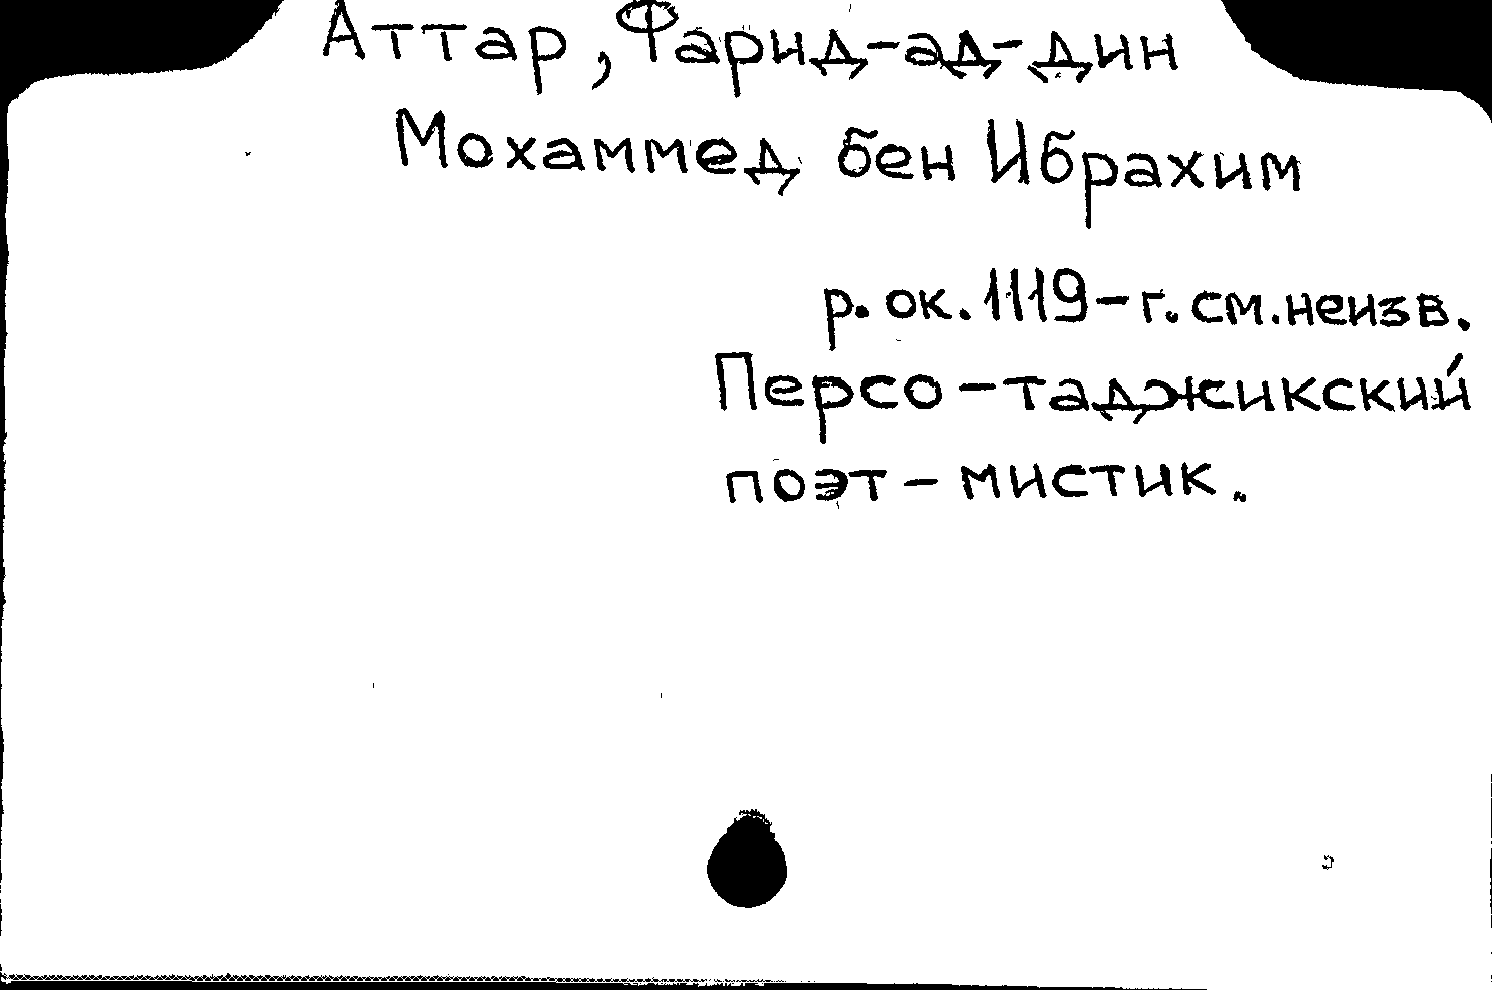 Аттар, Фарид-ад-дин
Мохаммед бен Ибрахим
р. ок. 1119 – г. см. неизв.
Персо-таджикский
поэт-мистик.